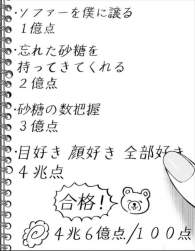 ・ソファーを僕に譲る
1億点
・忘れた砂糖を
持ってきてくれる
2億点
・砂糖の数把握
3億点
・目好き 顔好き 全部好き
4兆点
合格!
4兆6億点/100点